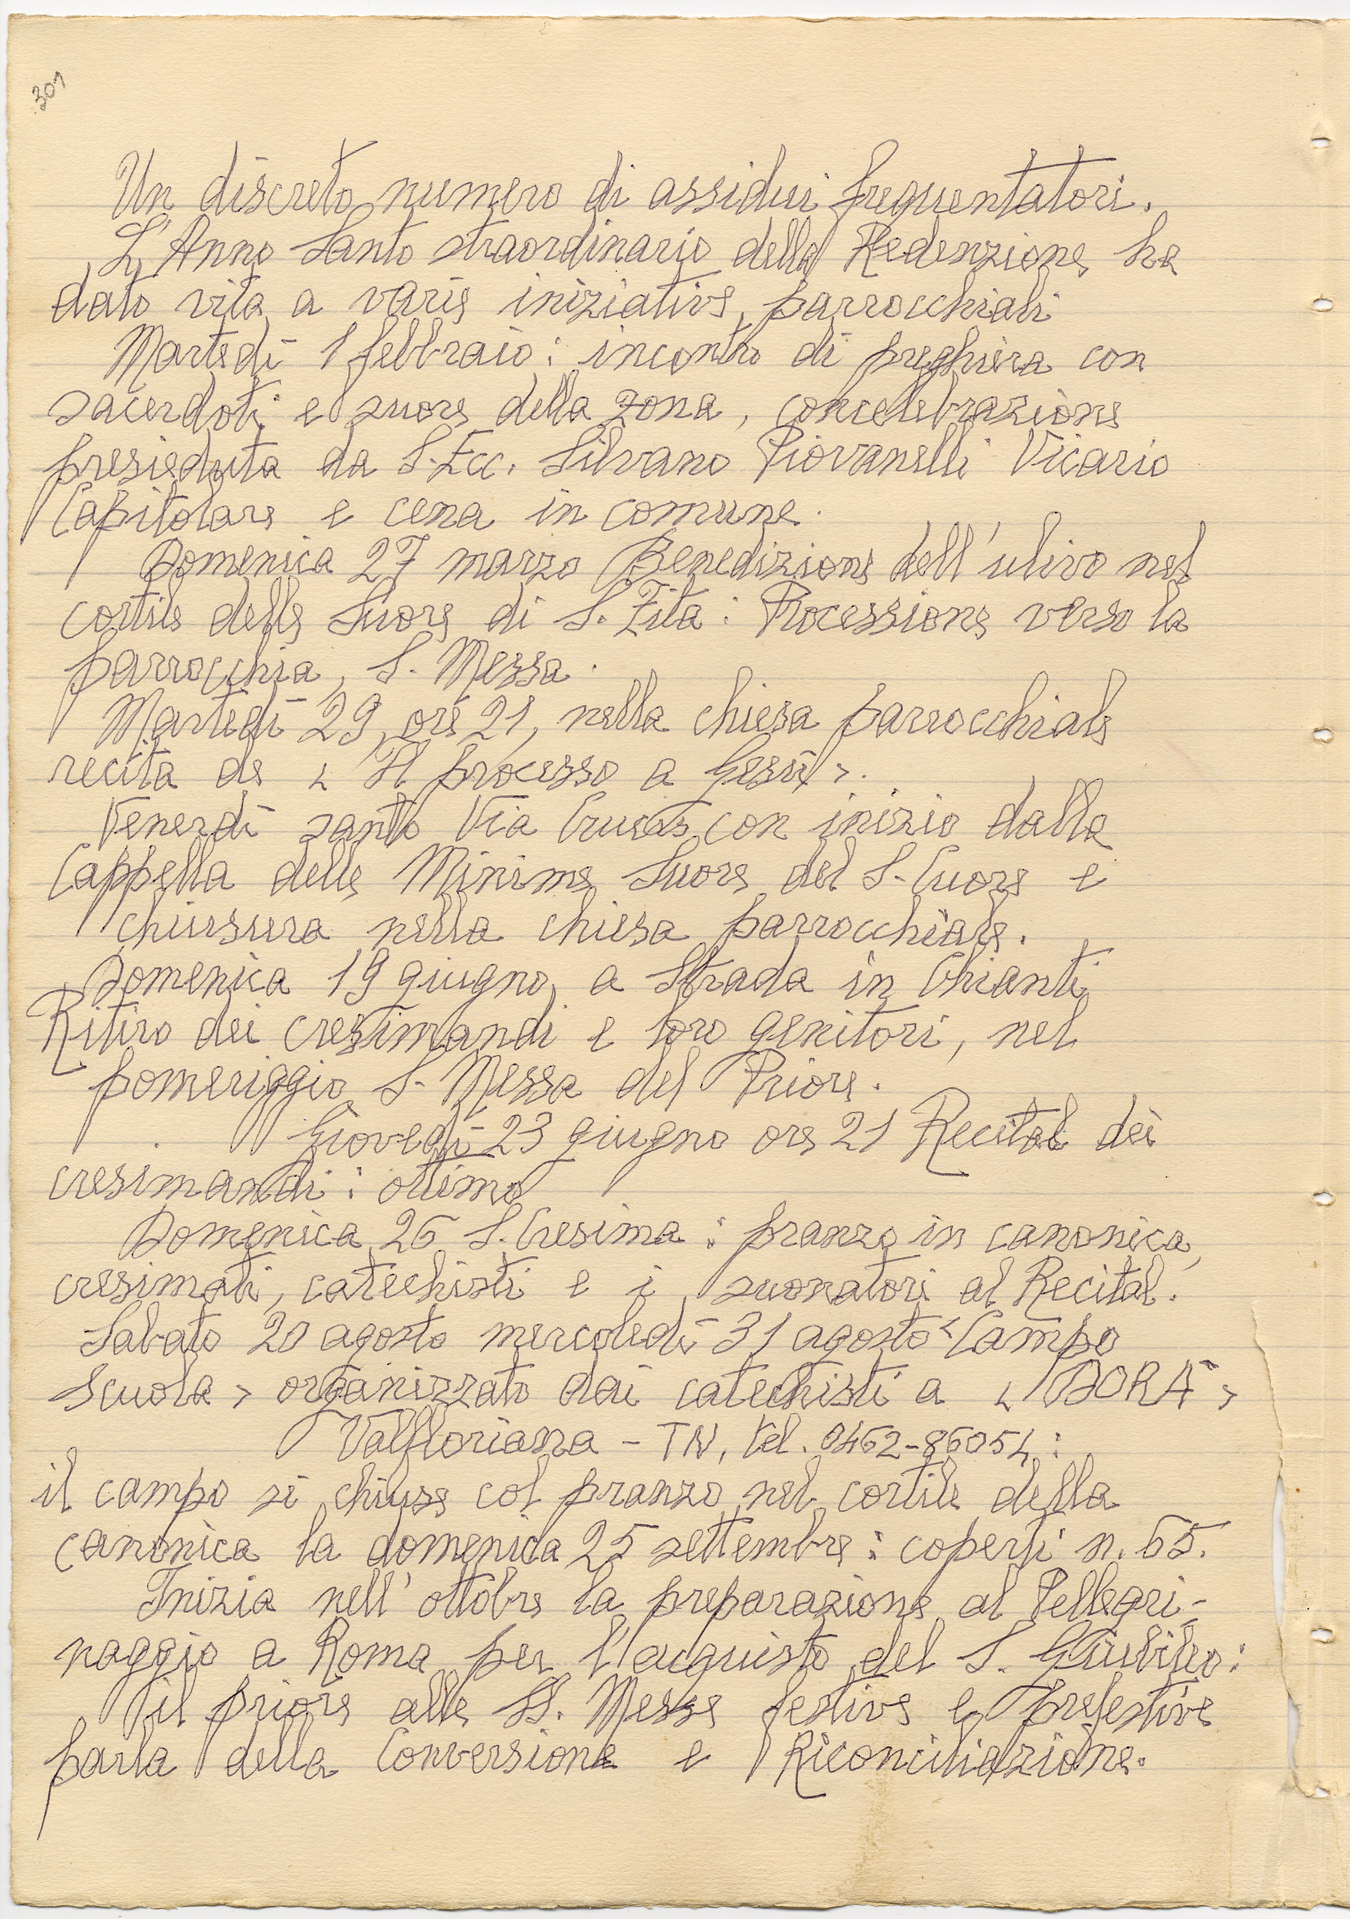 301
Un discreto numero di assidui frequentatori.
L'Anno Santo straordinario della Redenzione ha
dato vita a varie iniziative parrocchiali
Martedì 1 febbraio: incontro di preghiera con
sacerdoti e suore della zona, concelebrazione
presieduta da S. Ecc. Silvano Piovanelli Vicario
Capitolare e cena in comune.
Domenica 27 marzo Benedizione dell'ulivo nel
cortile delle Suore di S. Zita: Processione verso la
parrocchia, S. Messa.
Martedì 29, ore 21, nella chiesa parrocchiale
recita de < Il processo a Gesù >.
Venerdì santo Via Crucis con inizio dalla
Cappella delle Minime Suore del S. Cuore e
chiusura nella chiesa parrocchiale.
Domenica 19 giugno, a Strada in Chianti
Ritiro dei cresimandi e loro genitori, nel
pomeriggio S. Messa del Priore.
Giovedì 23 giugno ore 21 Recital dei
cresimandi: ottimo
Domenica 26 S. Cresima: pranzo in canonica,
cresimati, catechisti e i suonatori al Recital.
Sabato 20 agosto mercoledì 31 agosto < Campo
Scuola > organizzato dai catechisti a < DORÀ >
Valfloriana - TN, tel. 0462-86054:
il campo si chiuse col pranzo nel cortile della
canonica la domenica 25 settembre: coperti n. 65.
Inizia nell'ottobre la preparazione al Pellegri-
naggio a Roma per l'acquisto del S. Giubileo:
il priore alle SS. Messe festive e prefestive
parla della Conversione e Riconciliazione.